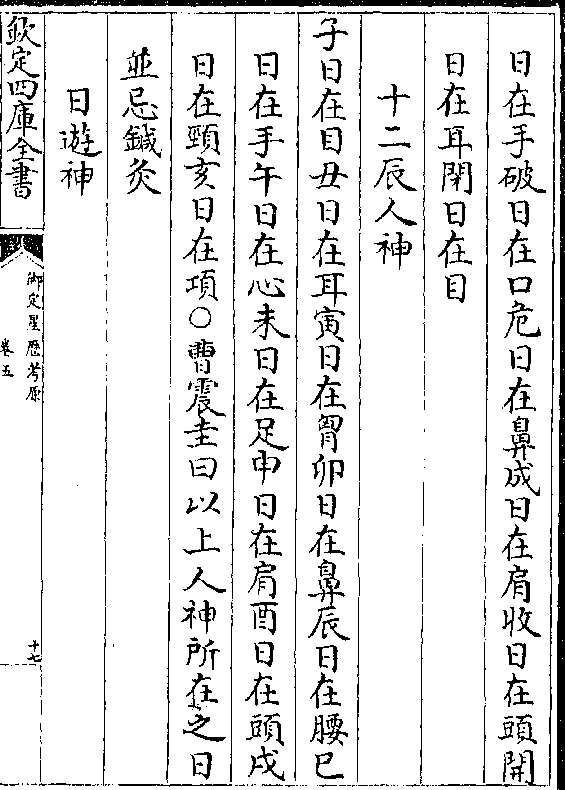 日在手破日在口危日在鼻成日在肩收日在頭開
日在耳閉日在目
十二辰人神
子日在目丑日在耳寅日在胷卯日在鼻辰日在腰巳
日在手午日在心未日在足申日在肩酉日在頭戌
日在頸亥日在項○曹震圭曰以上人神所在之日
並忌鍼灸
日遊神
欽定四庫全書
御定星歷考原
卷五
十七